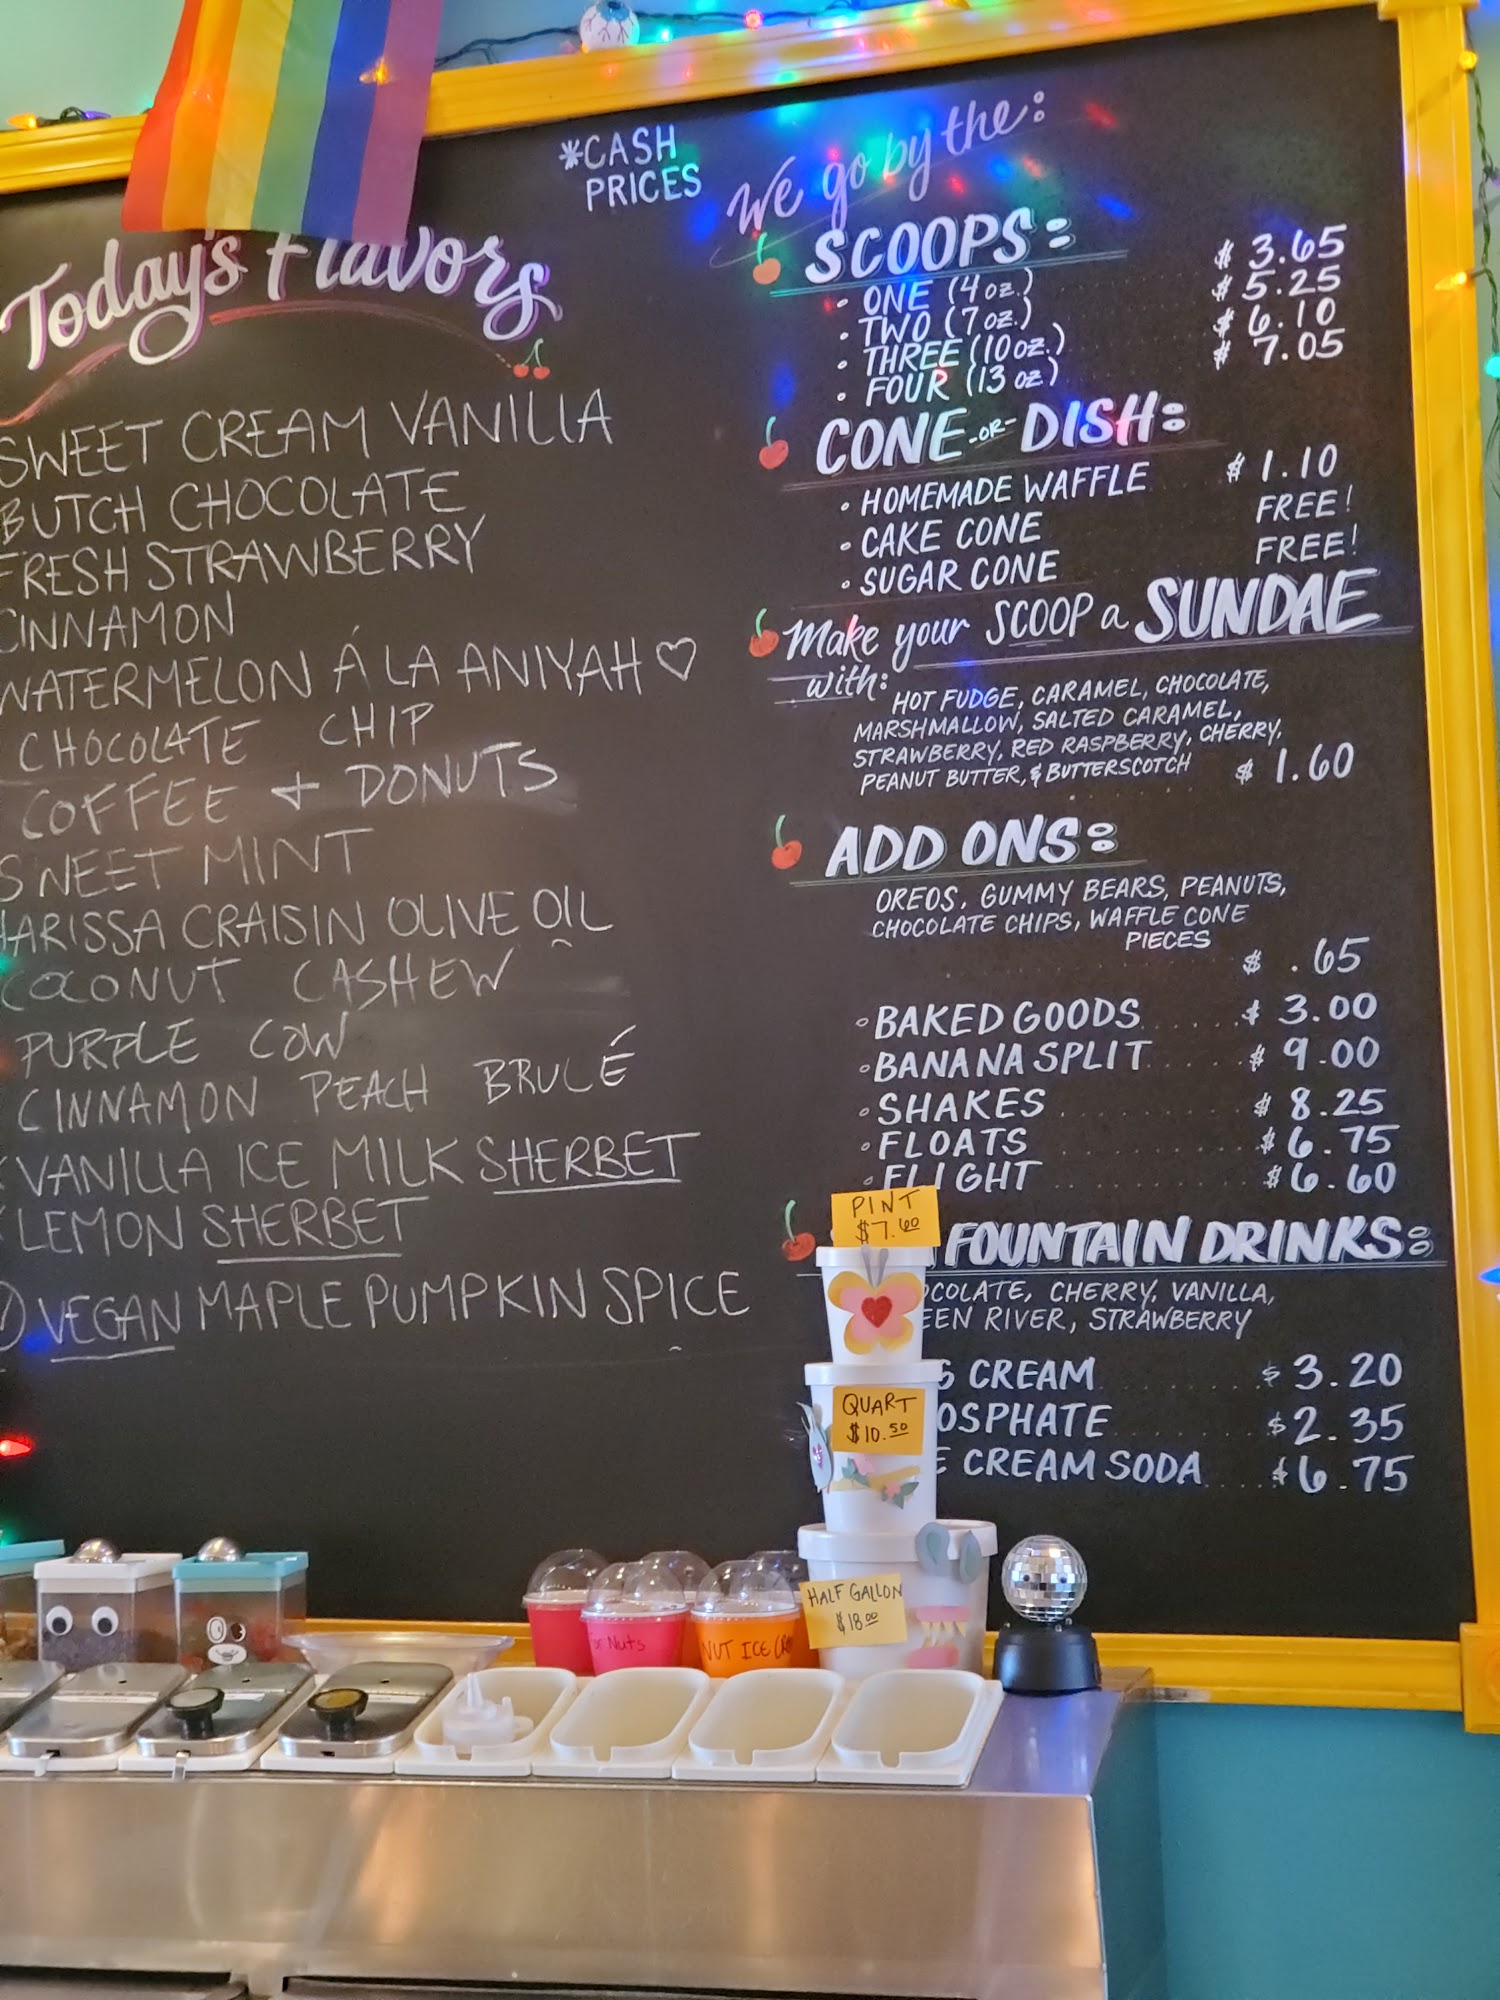 *CASH
PRICES
Today's Flavors
SWEET CREAM VANILLA
BUTCH CHOCOLATE
FRESH STRAWBERRY
CINNAMON
WATERMELON Á LA ANIYAH ♡
CHOCOLATE CHIP
COFFEE + DONUTS
SWEET MINT
HARISSA CRAISIN OLIVE OIL
COCONUT CASHEW
PURPLE COW
CINNAMON PEACH BRULÉ
VANILLA ICE MILK SHERBET
LEMON SHERBET
VEGAN MAPLE PUMPKIN SPICE
We go by the:
SCOOPS:
• ONE (4 oz.) $ 3.65
• TWO (7 oz.) $ 5.25
• THREE (10 oz.) $ 6.10
• FOUR (13 oz) $ 7.05
CONE -OR- DISH:
• HOMEMADE WAFFLE $ 1.10
• CAKE CONE FREE!
• SUGAR CONE FREE!
Make your SCOOP a SUNDAE
with: HOT FUDGE, CARAMEL, CHOCOLATE,
MARSHMALLOW, SALTED CARAMEL,
STRAWBERRY, RED RASPBERRY, CHERRY,
PEANUT BUTTER, & BUTTERSCOTCH $ 1.60
ADD ONS:
OREOS, GUMMY BEARS, PEANUTS,
CHOCOLATE CHIPS, WAFFLE CONE
PIECES
$ .65
• BAKED GOODS $ 3.00
• BANANA SPLIT $ 9.00
• SHAKES $ 8.25
• FLOATS $ 6.75
• FLIGHT $ 6.60
FOUNTAIN DRINKS:
OCOLATE, CHERRY, VANILLA,
EEN RIVER, STRAWBERRY
CREAM $ 3.20
OSPHATE $ 2.35
E CREAM SODA $ 6.75
PINT
$7.60
QUART
$10.50
HALF GALLON
$18.00
Nuts
NUT ICE CR